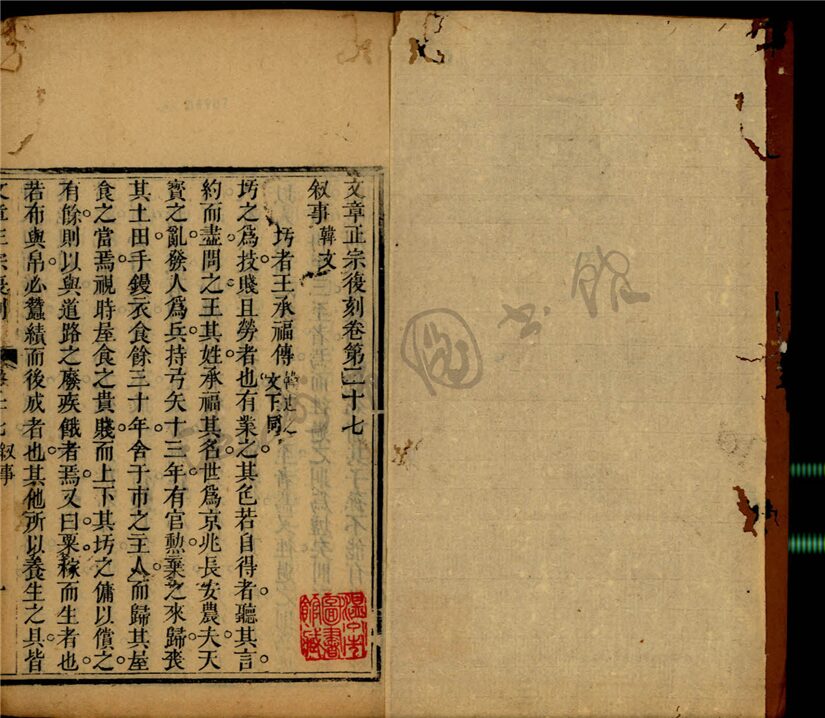 文章正宗復刻卷第二十七
叙事 韓文
圬者王承福傳 韓退之文下同
圬之爲技賤且勞者也有業之其色若自得者聽其言
約而盡問之王其姓承福其名世爲京兆長安農夫天
寶之亂發人爲兵持弓矢十三年有官勲棄之來歸喪
其土田手鏝衣食餘三十年舍于市之主人而歸其屋
食之當焉視時屋食之貴賤而上下其圬之傭以償之
有餘則以與道路之廢疾餓者焉又曰粟稼而生者也
若布與帛必蠶績而後成者也其他所以養生之具皆
叙事
溫州市
圖書
館藏
书館